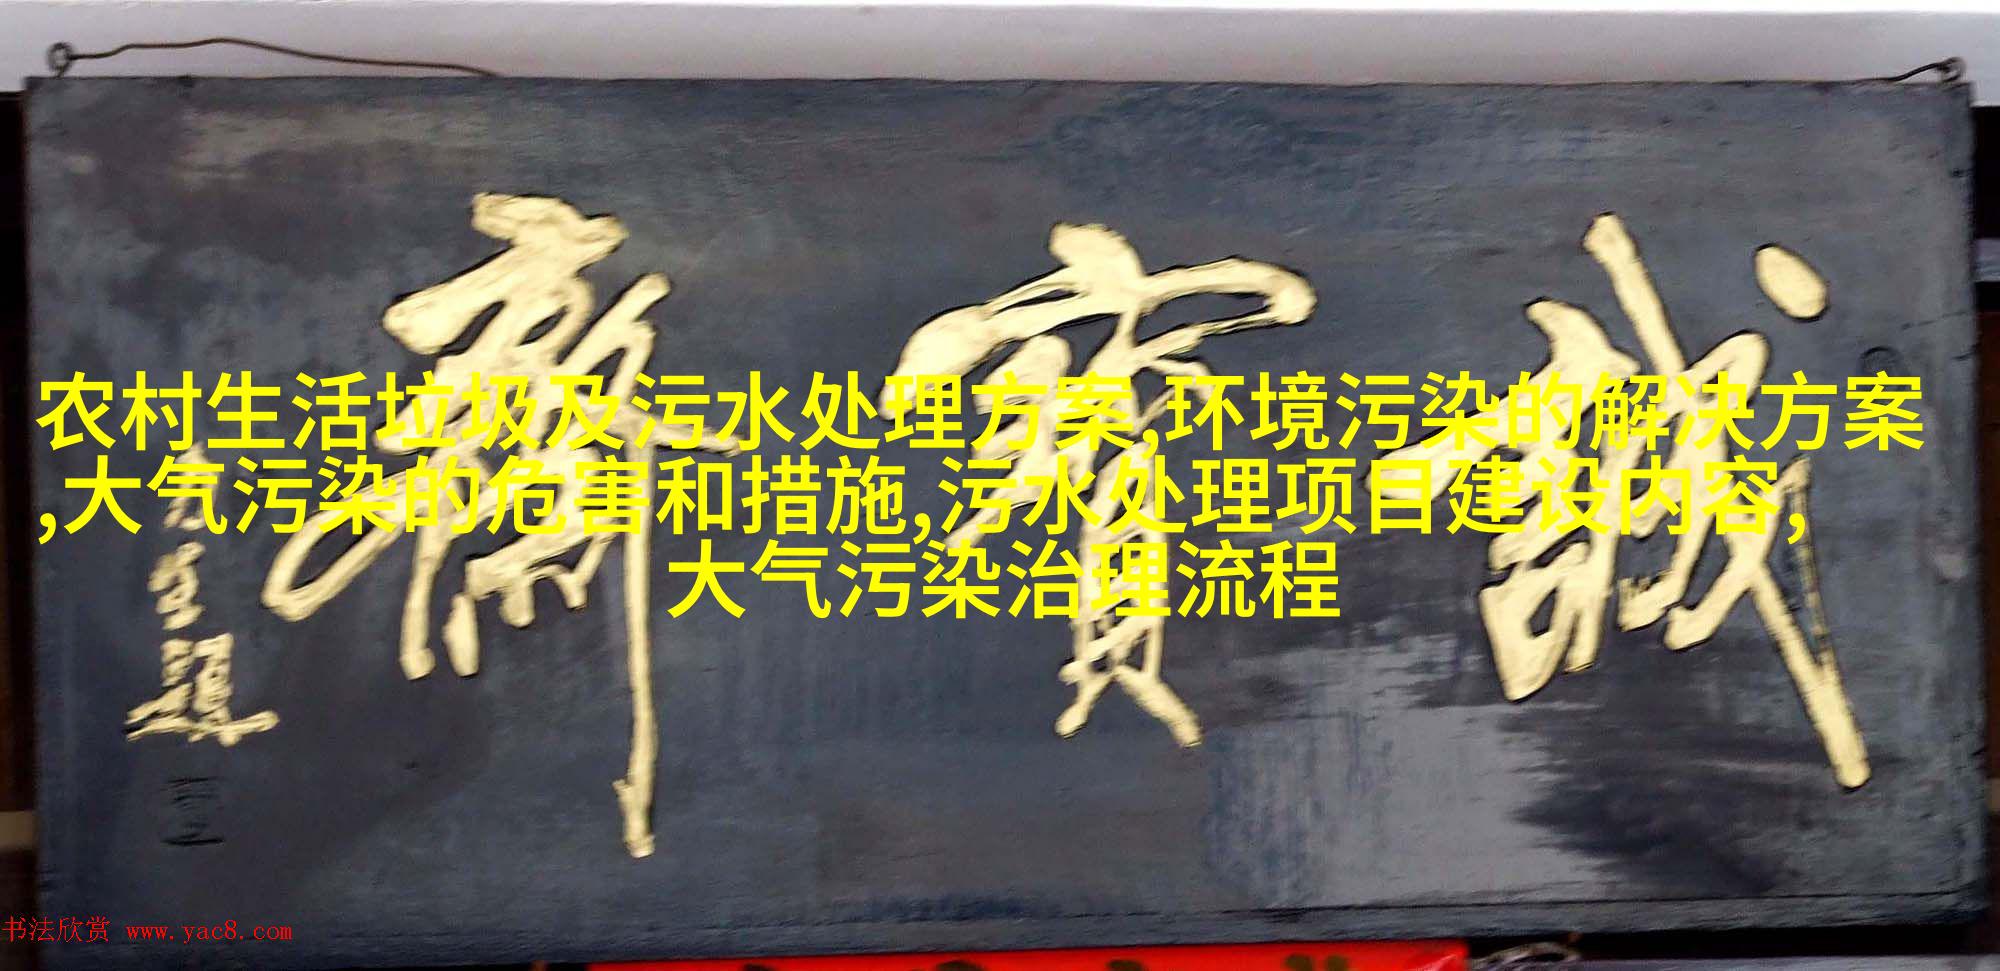 誠實齋
農村生活垃圾及污水处理方案,环境污染的解决方案
,大气污染的危害和措施,污水处理项目建设内容,
大气污染治理流程
生題
书法欣赏 www.yac8.com